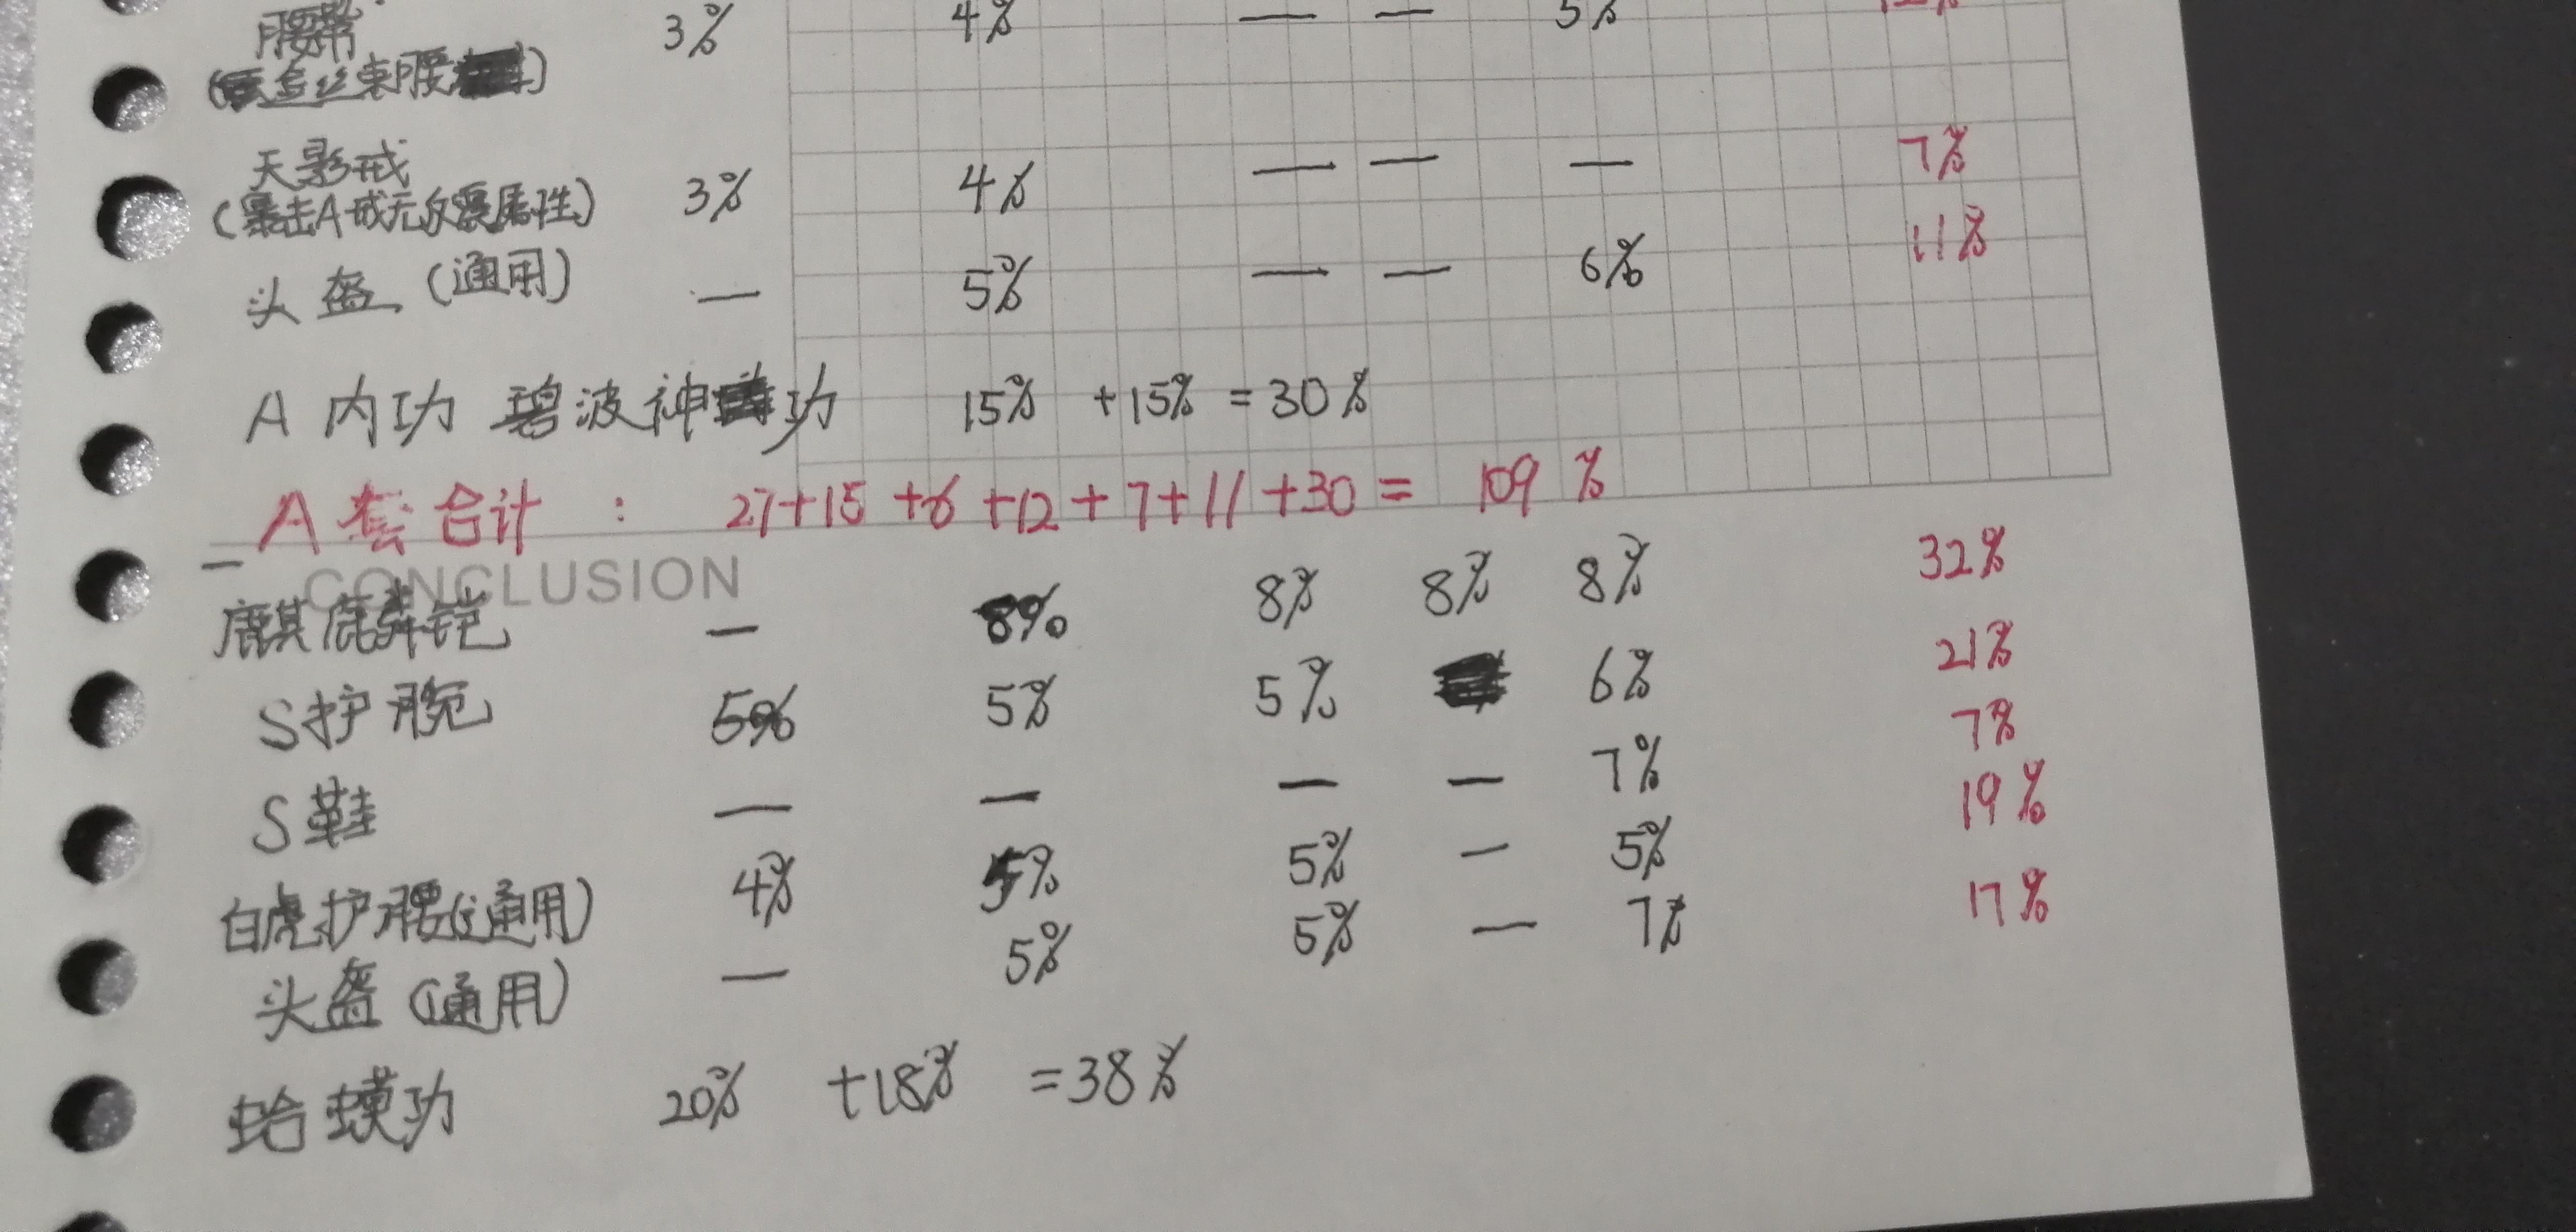 腰带 3% 4% — — 5% 12%
金丝束腰
天影戒 3% 4% — — — 7%
(暴击A戒无反震属性)
头盔 (通用) — 5% — — 6% 11%
A 内功 碧波神功 15% +15% =30%
A套合计 : 27+15+6+12+7+11+30= 109 %
CONCLUSION
麒麟铠 — 8% 8% 8% 8% 32%
S护腕 5% 5% 5% 6% 21%
S鞋 — — — — 7% 7%
白虎护腰(通用) 4% 5% 5% — 5% 19%
头盔 (通用) — 5% 5% — 7% 17%
蛤蟆功 20% +18% =38%